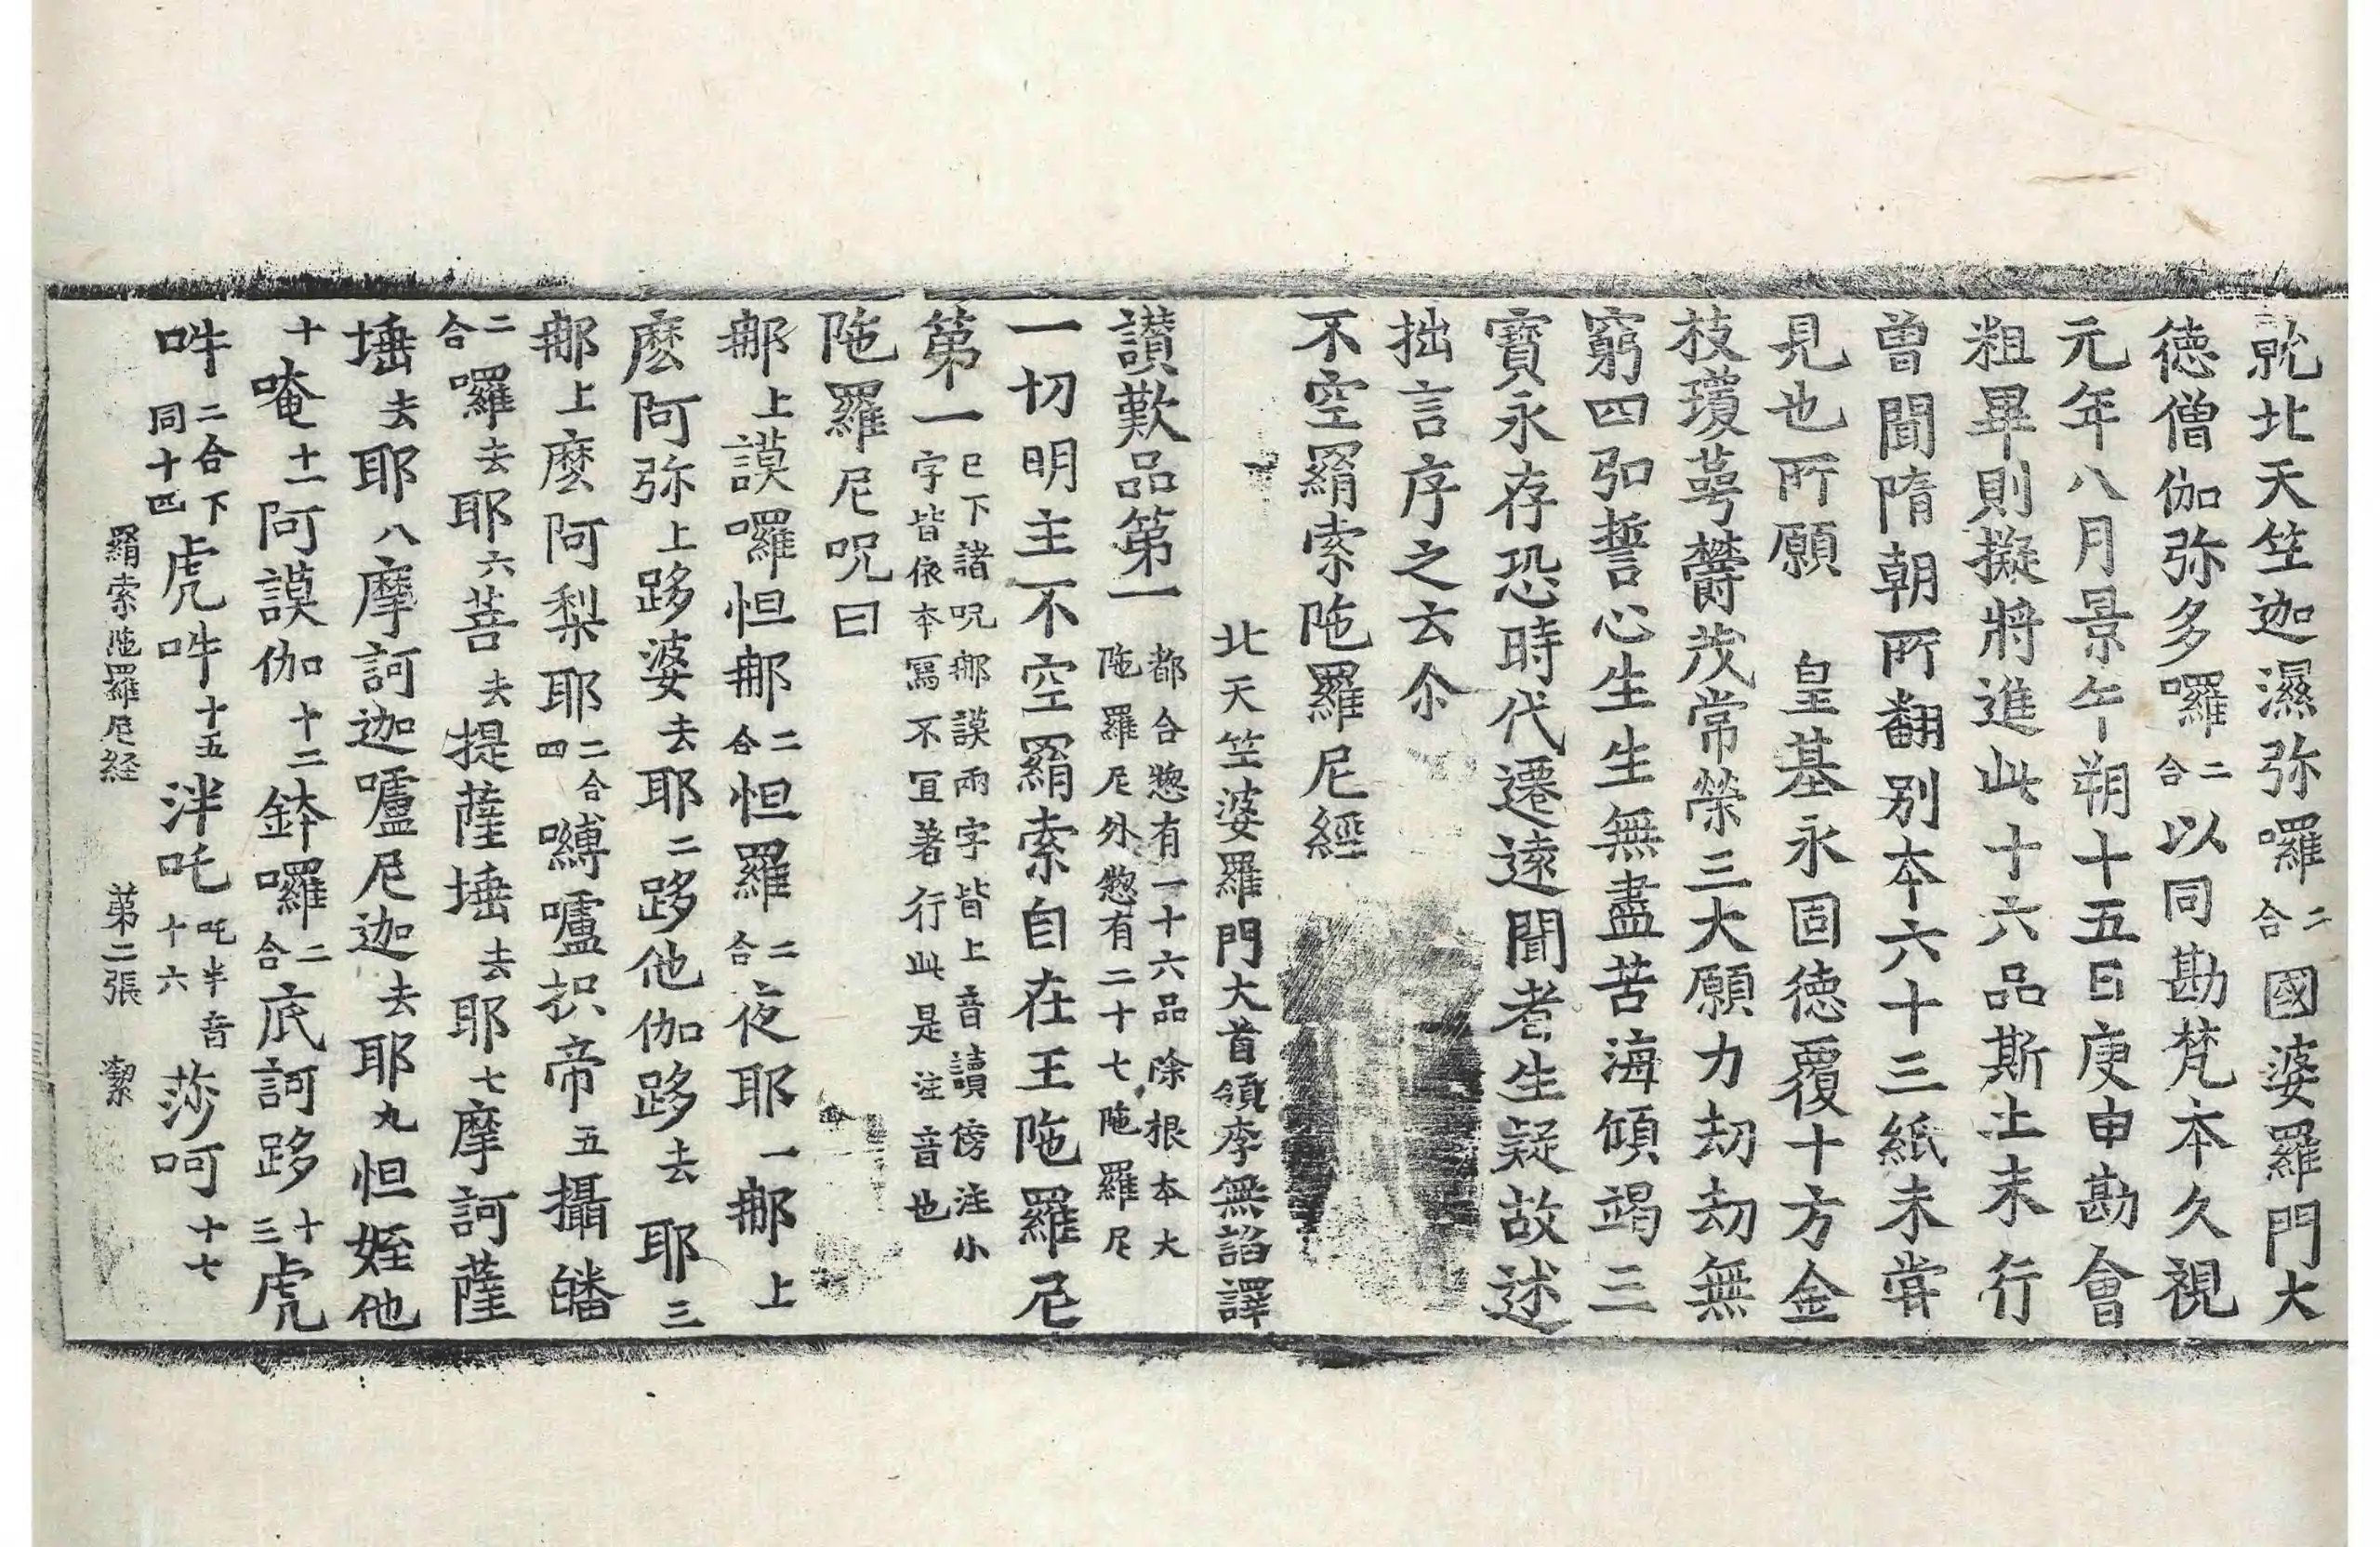 就北天竺迦濕弥囉二合國婆羅門大
德僧伽弥多囉二合以同勘梵本久視
元年八月景午朔十五日庚申勘會
粗畢則擬將進此十六品斯土未行
曾聞隋朝所翻別本六十三紙未甞
見也所願　皇基永固德覆十方金
枝瓊萼欝茂常榮三大願力劫劫無
窮四弘誓心生生無盡苦海傾竭三
寶永存恐時代遷遠聞者生疑故述
拙言序之云尒
不空羂索陁羅尼經
北天竺婆羅門大首領李無諂譯
讃歎品第一都合惣有一十六品除根本大陁羅尼外惣有二十七陁羅尼
一切明主不空羂索自在王陁羅尼
第一已下諸呪𨚗謨兩字皆上音讀傍注小字皆依本寫不冝著行此是注音也
陁羅尼呪曰
𨚗上謨囉怛𨚗二合怛羅二合夜耶一𨚗上
麽阿弥上跢婆去耶二跢他伽跢去耶三
𨚗上麽阿梨耶二合四嚩嚧枳帝五攝皤
二合囉去耶六菩去提薩埵去耶七摩訶薩
埵去耶八摩訶迦嚧尼迦去耶九怛姪他
十唵十一阿謨伽十二鉢囉二合底訶跢十三虎
𤙖二合下同十四虎𤙖十五泮吒吒半音十六莎呵十七
羂索陁羅尼経　第二張　潔